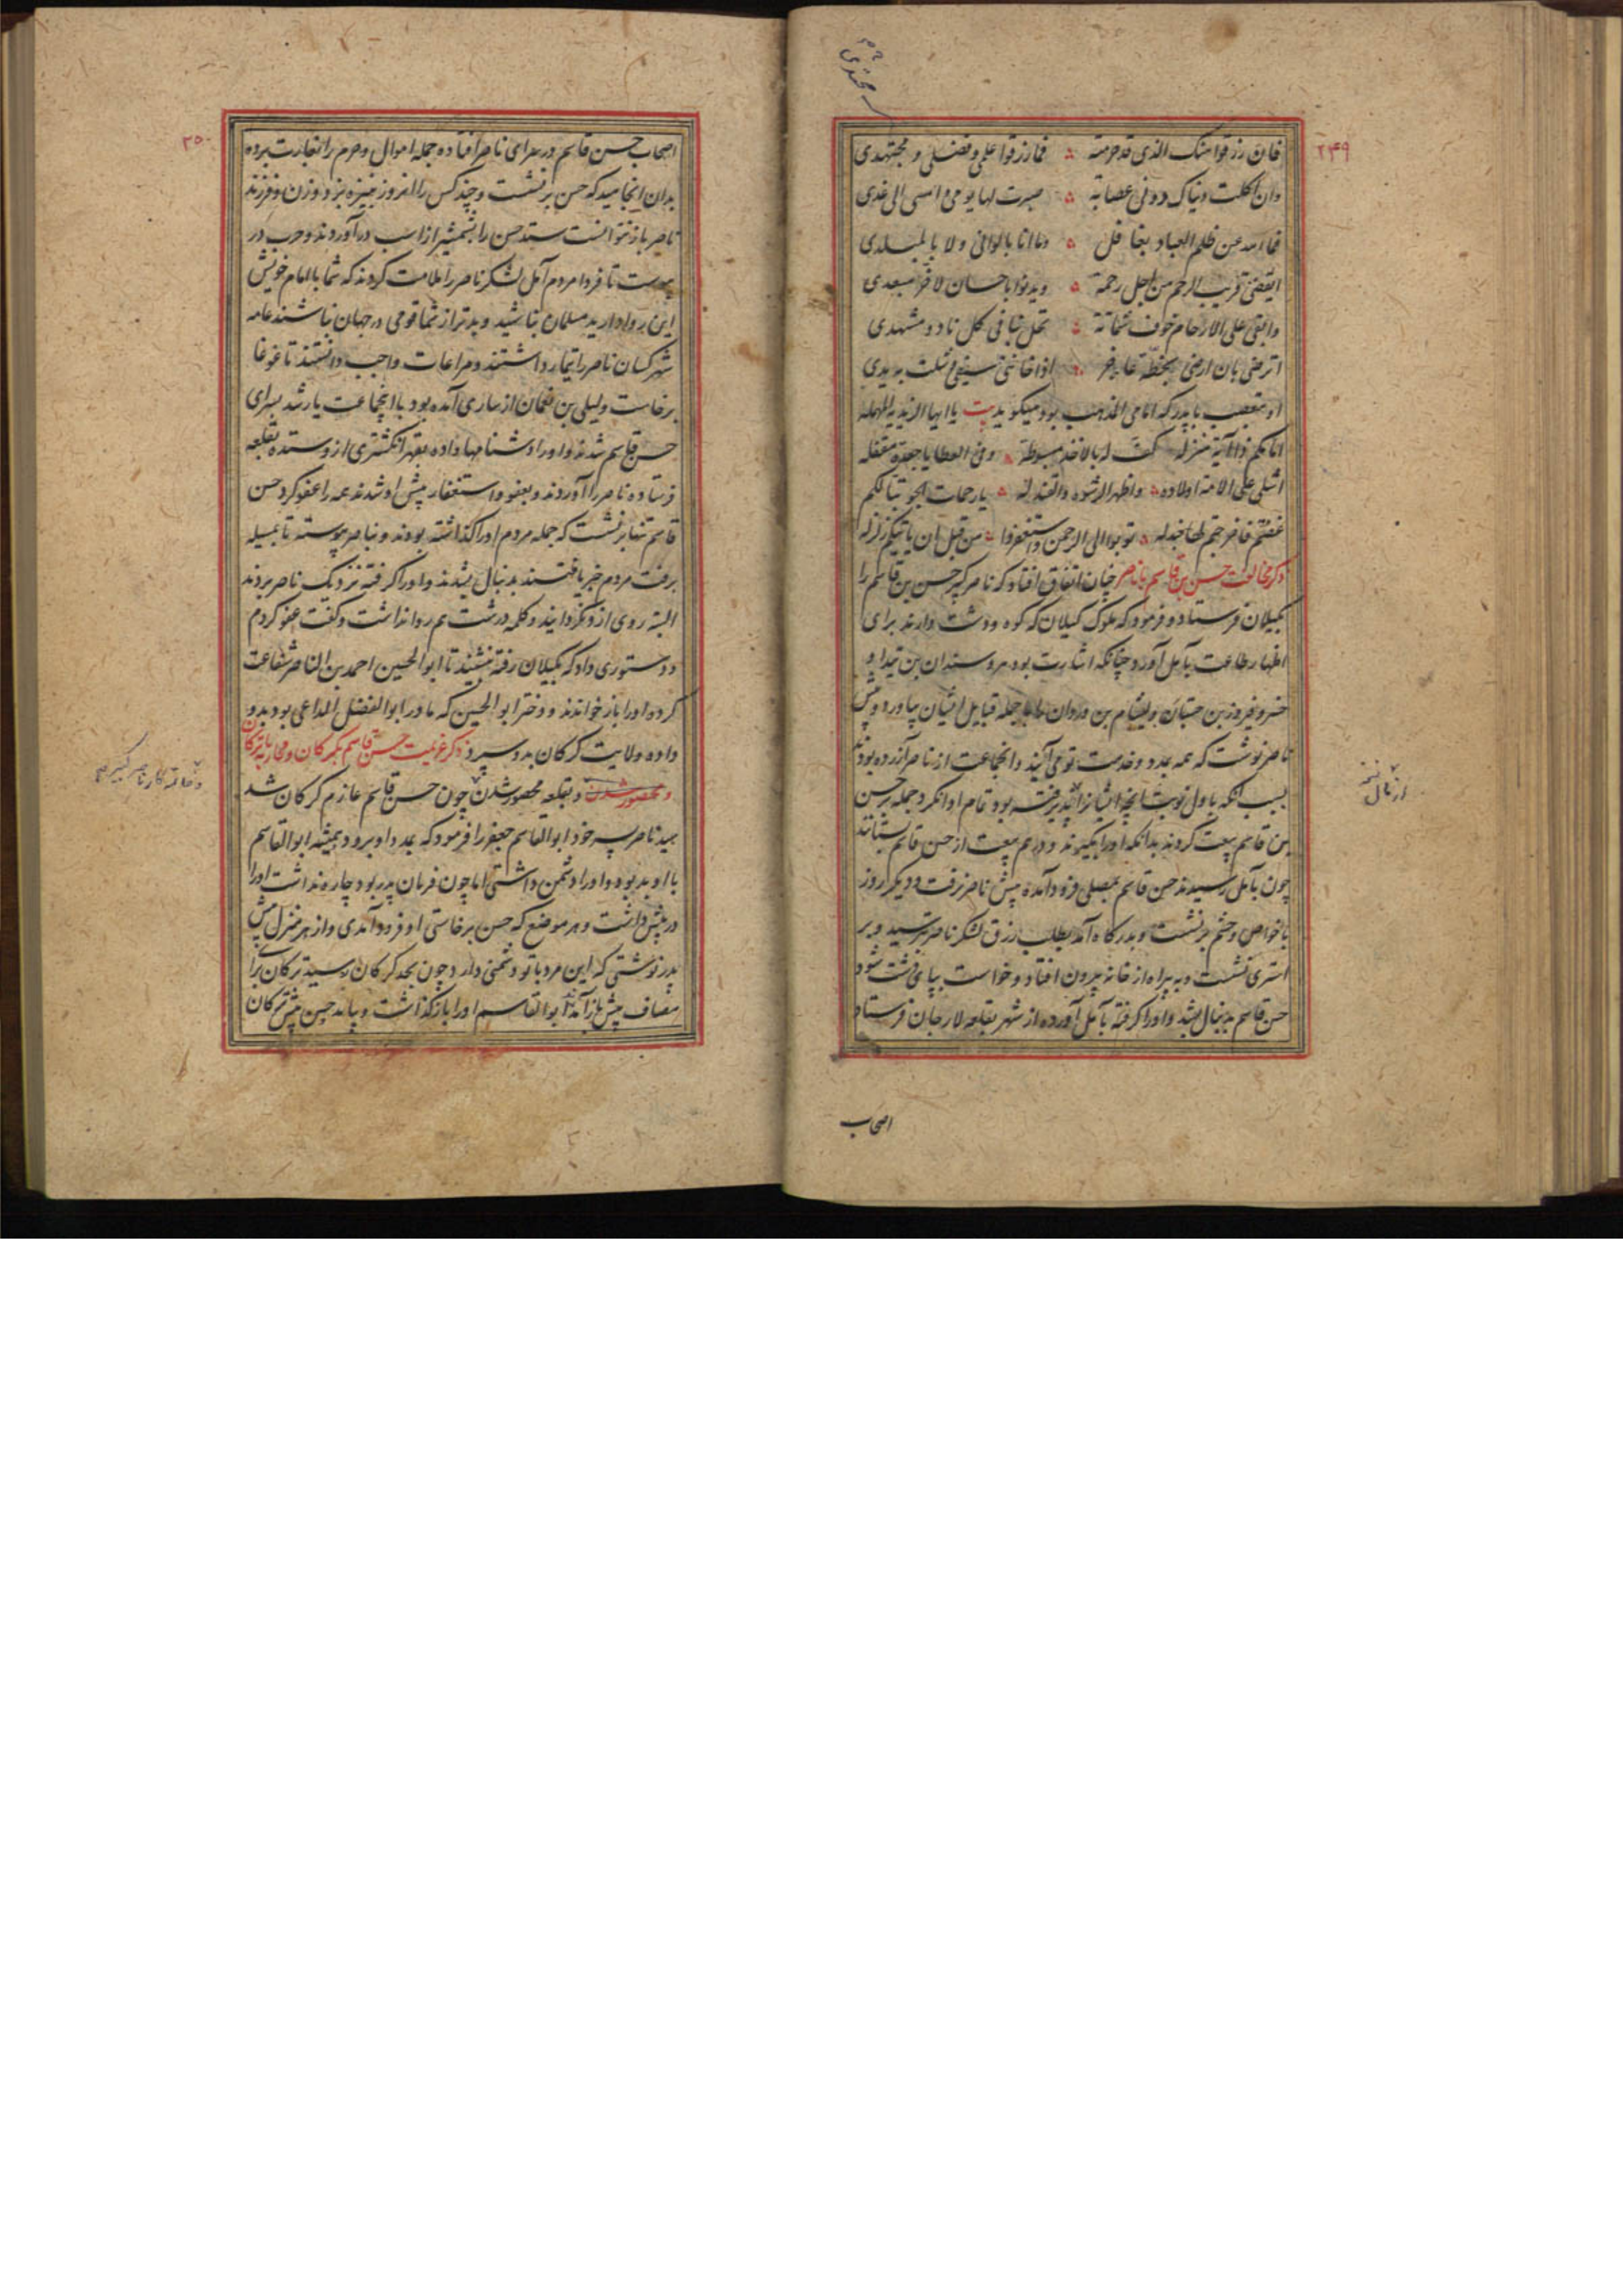 ۲۴۹
فان رزقوا منک الذی قد حرمته فما رزقوا علمی و فضلی و مجتهدی
وان اکلت دنیاک دونی عصابة صبرت لها یومی امسی الی غدی
فما احمد عن ظلم العباد بغافل وما انا بالوانی ولا بالمبلدی
قریب الرحم من اجل رحمة ویدنوا باحسان لاخر مبعدی
وابقی علی الارحام خوف شماتة تحل بنا فی کل ناد و مشهدی
اترضی بان ارضی بخطة عاجز اذا خاننی سیفی و شلت به یدی
او متعصب با پدر که امامی المذهب بود میگوید بیت یا ایها الزیدیه المهمله
امامکم ذا آیة منزله کف له بالاخذ مبسوطة وفی العطایا جعدة مقفله
اشلی علی الامة اولاده واظهر الرشوه والقندله
توبوا الی الرحمن واستغفروا من قبل ان یاتیکم زلزله
ذکر مخالفت حسن بن قاسم با ناصر چنان اتفاق افتاد که ناصر کبیر حسن بن قاسم را
بگیلان فرستاد و فرمود که ملوک گیلان که کوه و دشت دارند برای
اظهار طاعت بآمل آورد چنانکه اشارت بود هروسندان بن تیدا و
خسرو فیروز بن جستان و لیشام بن وردان را با جمله قبایل ایشان بیاورد و پیش
ناصر نوشت که همه بمدد و خدمت تو می آیند و آنجماعت از ناصر آزرده بودند
بسبب آنکه باول نوبت آنچه ایشانرا پذیرفته بود تمام ادا نکرد و جمله بر حسن
بن قاسم بیعت کردند بدانکه او را بگیرند و درهم بیعت از حسن قاسم بستانند
چون بآمل رسیدند حسن قاسم بمصلی فرود آمده پیش ناصر نرفت و دیگر روز
با خواص و حشم برنشست و بدرگاه آمد بطلب رزق لشکر ناصر بترسید و بر
استری نشست و به بیراه از خانه بیرون افتاد و خواست بپای دشت شود
حسن قاسم بدنبال بشد و او را گرفته بآمل آورده از شهر بقلعه لارجان فرستاد
اصحاب
۲۵۰
اصحاب حسن قاسم در سرای ناصر افتاده جمله اموال و حرم را بغارت برده
بدان انجامید که حسن برنشست و چند کس را آنروز بنیزه بزد و زن و فرزند
ناصر باز نتوانست ستد حسن را بشمشیر از اسب درآوردند و حرب در
پیوست تا فردا مردم آمل لشکر ناصر را ملامت کردند که شما با امام خویش
این روا دارید مسلمان نباشید و بدتر از شما قومی در جهان نباشند عامه
شهر کسان ناصر را تیمار داشتند و مراعات واجب دانستند تا غوغا
برخاست و لیلی بن نعمان از ساری آمده بود با آنجماعت یار شد بسرای
حسن قاسم شدند و او را دشنامها داده بقهر انگشتری از دستده بقلعه
فرستاده ناصر را آوردند و بعفو و استغفار پیش او شدند همه را عفو کرد حسن
قاسم تنها برنشست که جمله مردم او را گذاشته بودند و بناصر پیوسته تا بمیله
برفت مردم خبر یافتند بدنبال بشدند و او را گرفته نزدیک ناصر بردند
البته روی ازو نگردانید و کلمه درشت هم روا نداشت و گفت عفو کردم
و دستوری داد که بگیلان رفته بنشیند تا ابوالحسین احمد بن الناصر شفاعت
کرده او را باز خواندند و دختر ابوالحسین که مادر ابوالفضل الداعی بود بدو
داده ولایت گرگان بدو سپرد ذکر عزیمت حسن قاسم بگرگان و محاربه با ترکان
و محصور شدن و بقلعه محصور شدن چون حسن قاسم عازم گرگان شد
سید ناصر پسر خود ابوالقاسم جعفر را فرمود که بمدد او برود و همیشه ابوالقاسم
با او بد بود و او را دشمن داشتی اما چون فرمان پدر بود چاره نداشت او را
در پیش داشت و هر موضع که حسن برخاستی او فرود آمدی و از هر منزل پیش
پدر نوشتی که این مرد با تو دشمنی دارد چون بحد گرگان رسید ترکان برای
مصاف پیش باز آمدند ابوالقاسم او را باز گذاشت و بیامد حسن پیش ترکان